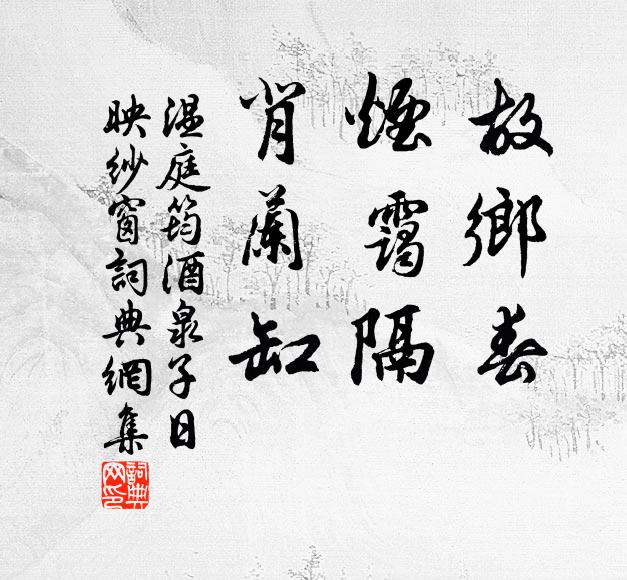 故鄉春
煙靄隔
背蘭缸
溫庭筠酒泉子日
映紗窗詞典網集
詞典
网印